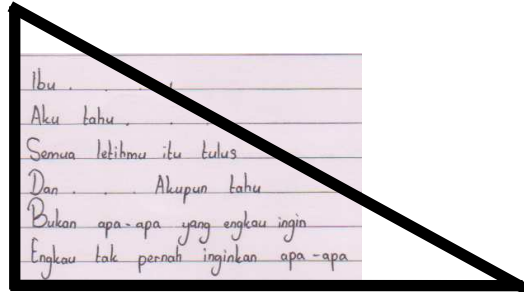 Ibu . . . . .
Aku tahu . . .
Semua letihmu itu tulus
Dan . . . . Akupun tahu
Bukan apa-apa yang engkau ingin
Engkau tak pernah inginkan apa-apa